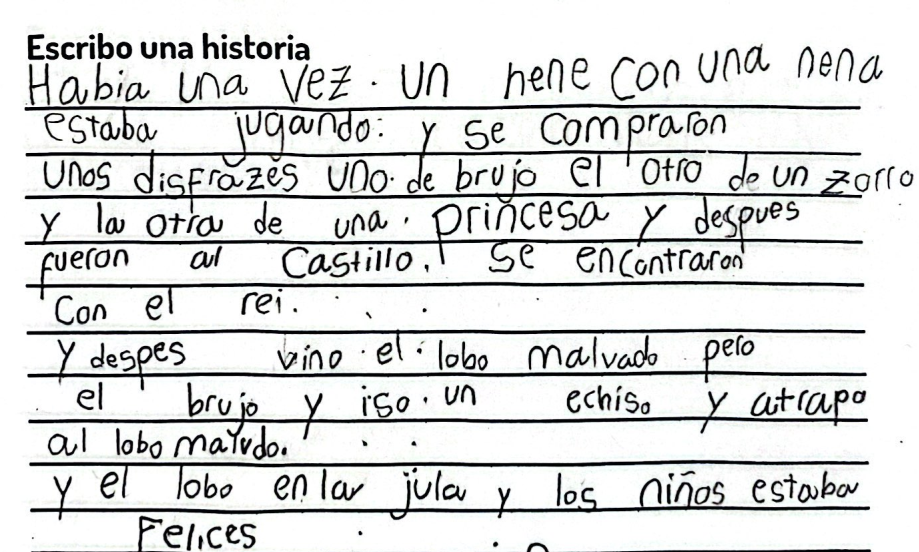 Escribo una historia
Habia una vez. un nene con una nena
estaba jugando: y se compraron
unos disfrazes uno. de brujo el otro de un zorro
y la otra de una. princesa y despues
fueron al castillo. se encontraron
con el rei.
y despes vino el lobo malvado pero
el brujo y iso. un echiso y atrapo
al lobo malvdo.
y el lobo en la jula y los niños estaba
Felices